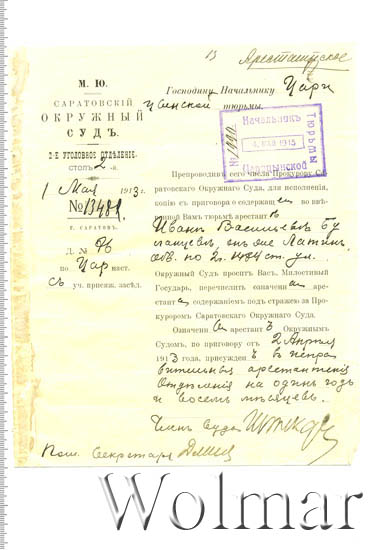 13 Арестантское
М. Ю.
САРАТОВСКІЙ
ОКРУЖНЫЙ
СУДЪ.
2-Е УГОЛОВНОЕ ОТДѢЛЕНІЕ.
СТОЛЪ 2-й.
1 Мая 1913 г.
№ 13481.
Г. САРАТОВЪ.
Д. № 76
по Цар наст.
съ уч. присяж. засѣд.
Господину Начальнику Цари
цинской тюрьмы.
Начальникъ
МАЯ 1915
Царицынской
Тюрьмы
№
Препроводивъ сего числа Прокурору Са-
ратовскаго Окружнаго Суда, для исполненія,
копію съ приговора о содержащ ем по ввѣ-
ренной Вамъ тюрьмѣ арестант
Иванъ Васильевъ Бу
ланцевъ, онъ же Латин,
обв. по 2 ч. 1484 ст. ул.
Окружный Судъ проситъ Васъ, Милостивый
Государь, перечислить означен
арестант а содержаніемъ подъ стражею за Про-
куроромъ Саратовскаго Окружнаго Суда.
Означенн ый арестант ъ Окружнымъ
Судомъ, по приговору отъ 2 Апрѣля
1913 года, присужден ъ въ испра
вительныя арестантскія
отдѣленія на одинъ годъ
и восемь мѣсяцевъ.
Членъ Суда
Пом. Секретаря
Wolmar